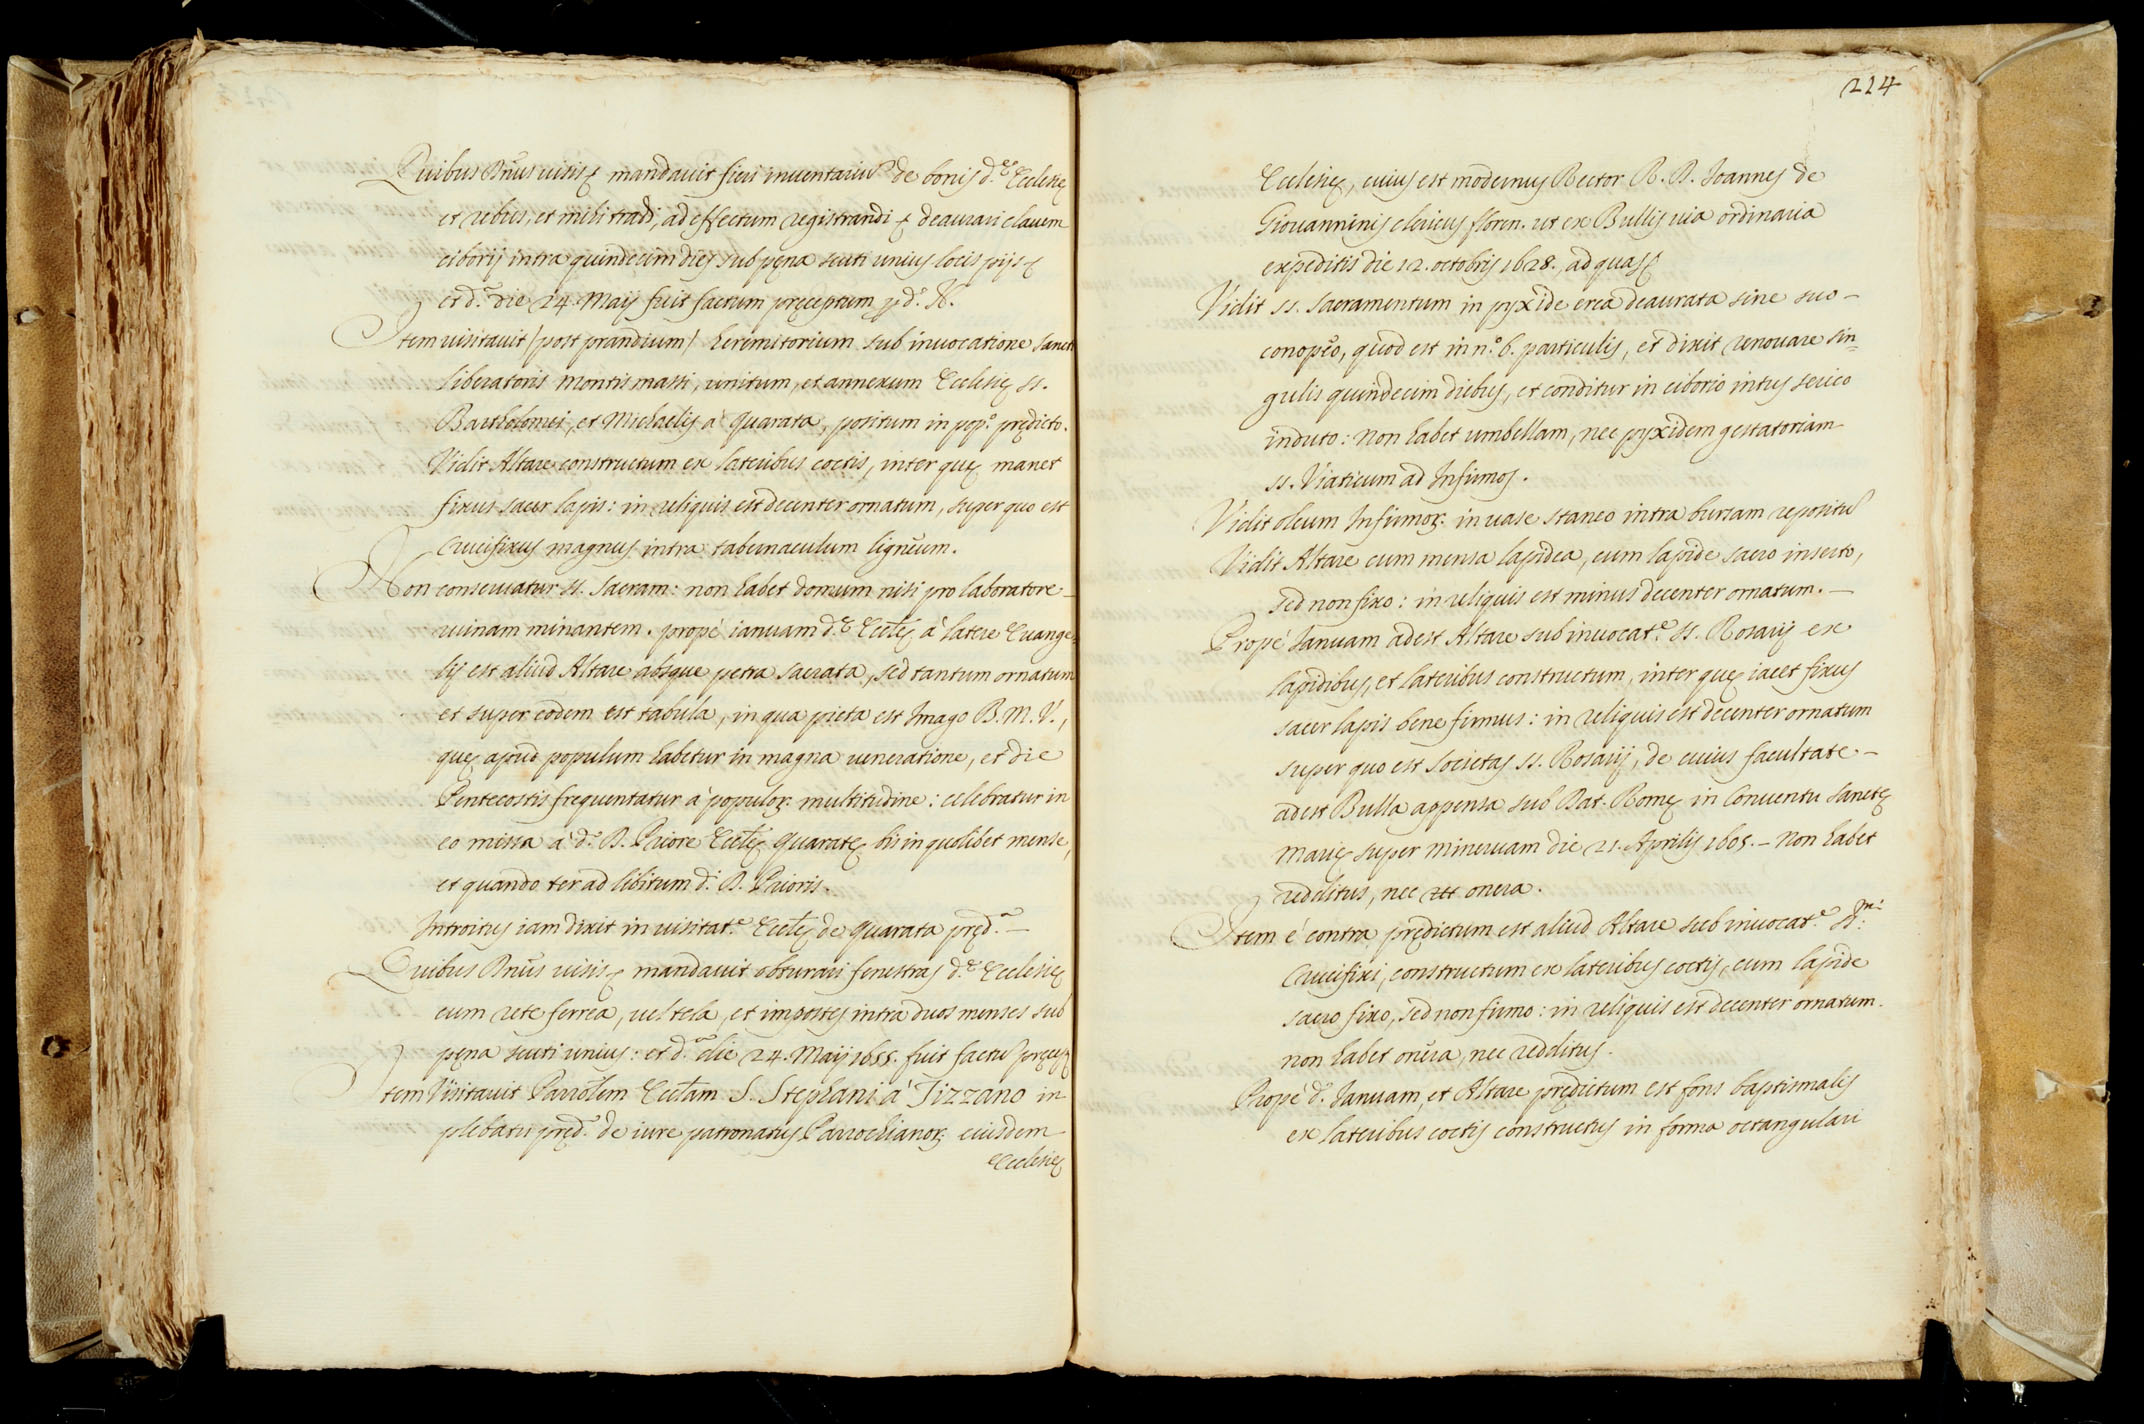 Quibus Dn̄us visis etc. mandavit fieri inventariū de bonis d.ę Ecclesię
et rebus, et mihi tradi, ad effectum registrandi et deaurari clavem
ciborij intra quindecim dies sub pęna scuti unius locis pijs etc.
et d.a die 24. Maij fuit factum pręceptum p d.o R.
Item visitavit /post prandium/ heremitorium sub invocatione Sancti
Liberatoris Montis massi, unitum, et annexum Ecclesię SS.
Bartholomei, et Michaelis a Quarata, positum in pop.o prędicto.
Vidit Altare constructum ex lateribus coctis, inter quę manet
fixus sacer lapis: in reliquis est decenter ornatum, super quo est
Crucifixus magnus intra tabernaculum ligneum.
Non conservatur SS. Sacram: non habet domum nisi pro laboratore
ruinam minantem. propè ianuam d.ę Eccl̄ę à latere Evange=
lij est aliud Altare absque petra sacrata, sed tantum ornatum
et super eodem est tabula, in qua picta est Imago B. M. V.,
quę apud populum habetur in magna veneratione, et die
Pentecostis frequentatur à populor. multitudine: celebratur in
eo missa à d.o D. Priore Eccl̄ę Quaratę bis in quolibet mense,
et quando ter ad libitum d.i D. Prioris.
Introitus iam dixit in visitat.e Eccl̄ę de Quarata pręd.a –
Quibus Dn̄us visis etc. mandavit obturari fenestras d.ę Ecclesię
cum rete ferrea, vel tela, et impostes intra duos menses sub
pęna scuti unius: et d.a die 24. Maij 1655. fuit factū pręcep.
Item Visitavit Parrōlem Eccl̄am S. Stephani à Tizzano in
plebatu pręd.o de iure patronatus Parrochianor. eiusdem
Ecclesię
224
Ecclesię, cuius est modernus Rector R. D. Joannes de
Giovanninis clericus floren. ut ex Bullis via ordinaria
expeditis die 12. octobris 1628., ad quas etc.
Vidit SS. Sacramentum in pyxide erea deaurata sine suo –
conopęo, quod est in n.o 6. particulis, et dixit renovare sin=
gulis quindecim diebus, et conditur in ciborio intus serico
induto: non habet umbellam, nec pyxidem gestatoriam
SS. Viaticum ad Infirmos.
Vidit oleum Infirmor. in vase staneo intra bursam repositū
Vidit Altare cum mensa lapidea, cum lapide sacro inserto,
sed non fixo: in reliquis est minus decenter ornatum. –
Propè Ianuam adest Altare sub invocat.e SS. Rosarij ex
lapidibus, et lateribus constructum, inter quę iacet fixus
sacer lapis bene firmus: in reliquis est decenter ornatum
super quo est Societas SS. Rosarij, de cuius facultate –
adest Bulla appensa sub Dat. Romę in Conventu Sanctę
Marię super Minervam die 21. Aprilis 1605. – Non habet
redditus, nec onera.
Item è contra prędictum est aliud Altare sub invocat.e S.mi
Crucifixi, constructum ex lateribus coctis, cum lapide
sacro fixo, sed non firmo: in reliquis est decenter ornatum.
non habet onera, nec redditus.
Propè d.a Ianuam, et Altare prędictum est fons baptismalis
ex lateribus coctis constructus in forma octangulari